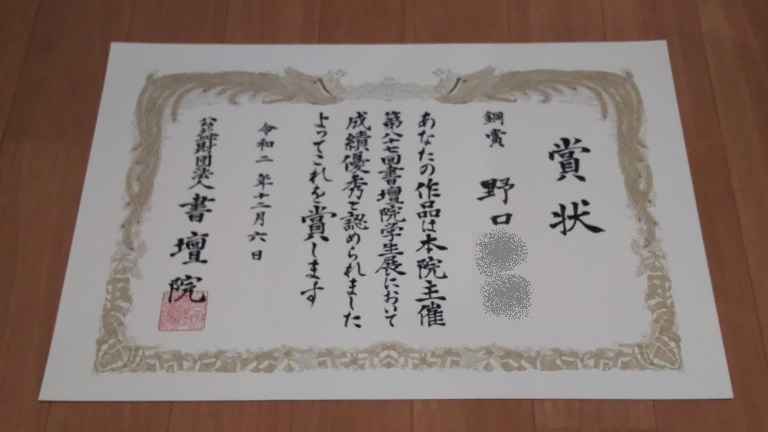 賞状
銅賞 野口
あなたの作品は本院主催
第八十七回書壇院学生展において
成績優秀と認められました
よってこれを賞します
令和二年十二月六日
公益財団法人 書壇院